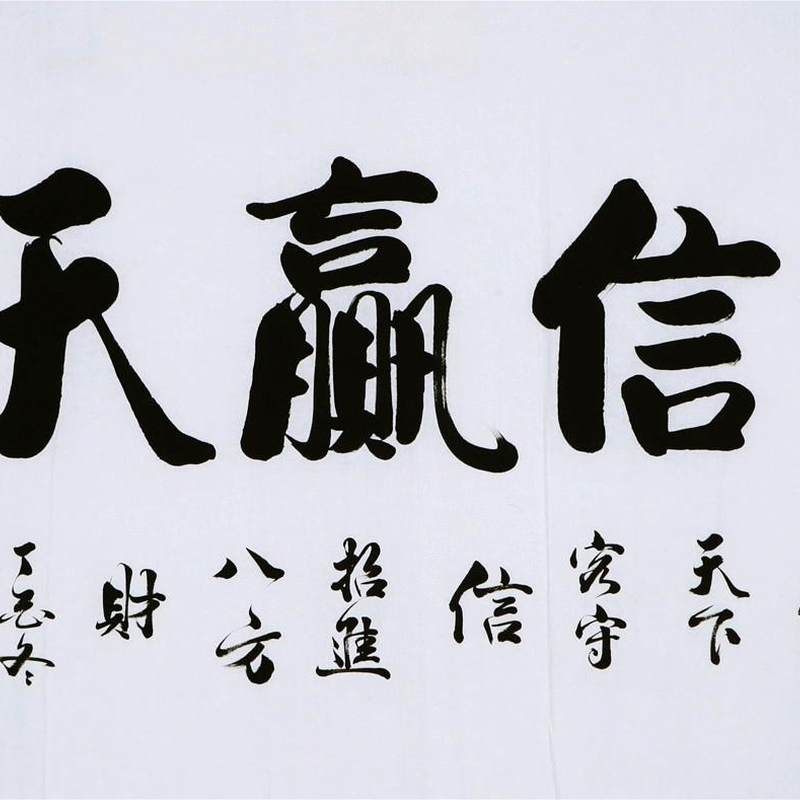 信贏天
天下
客守
信
招進
八方
財
丁
冬